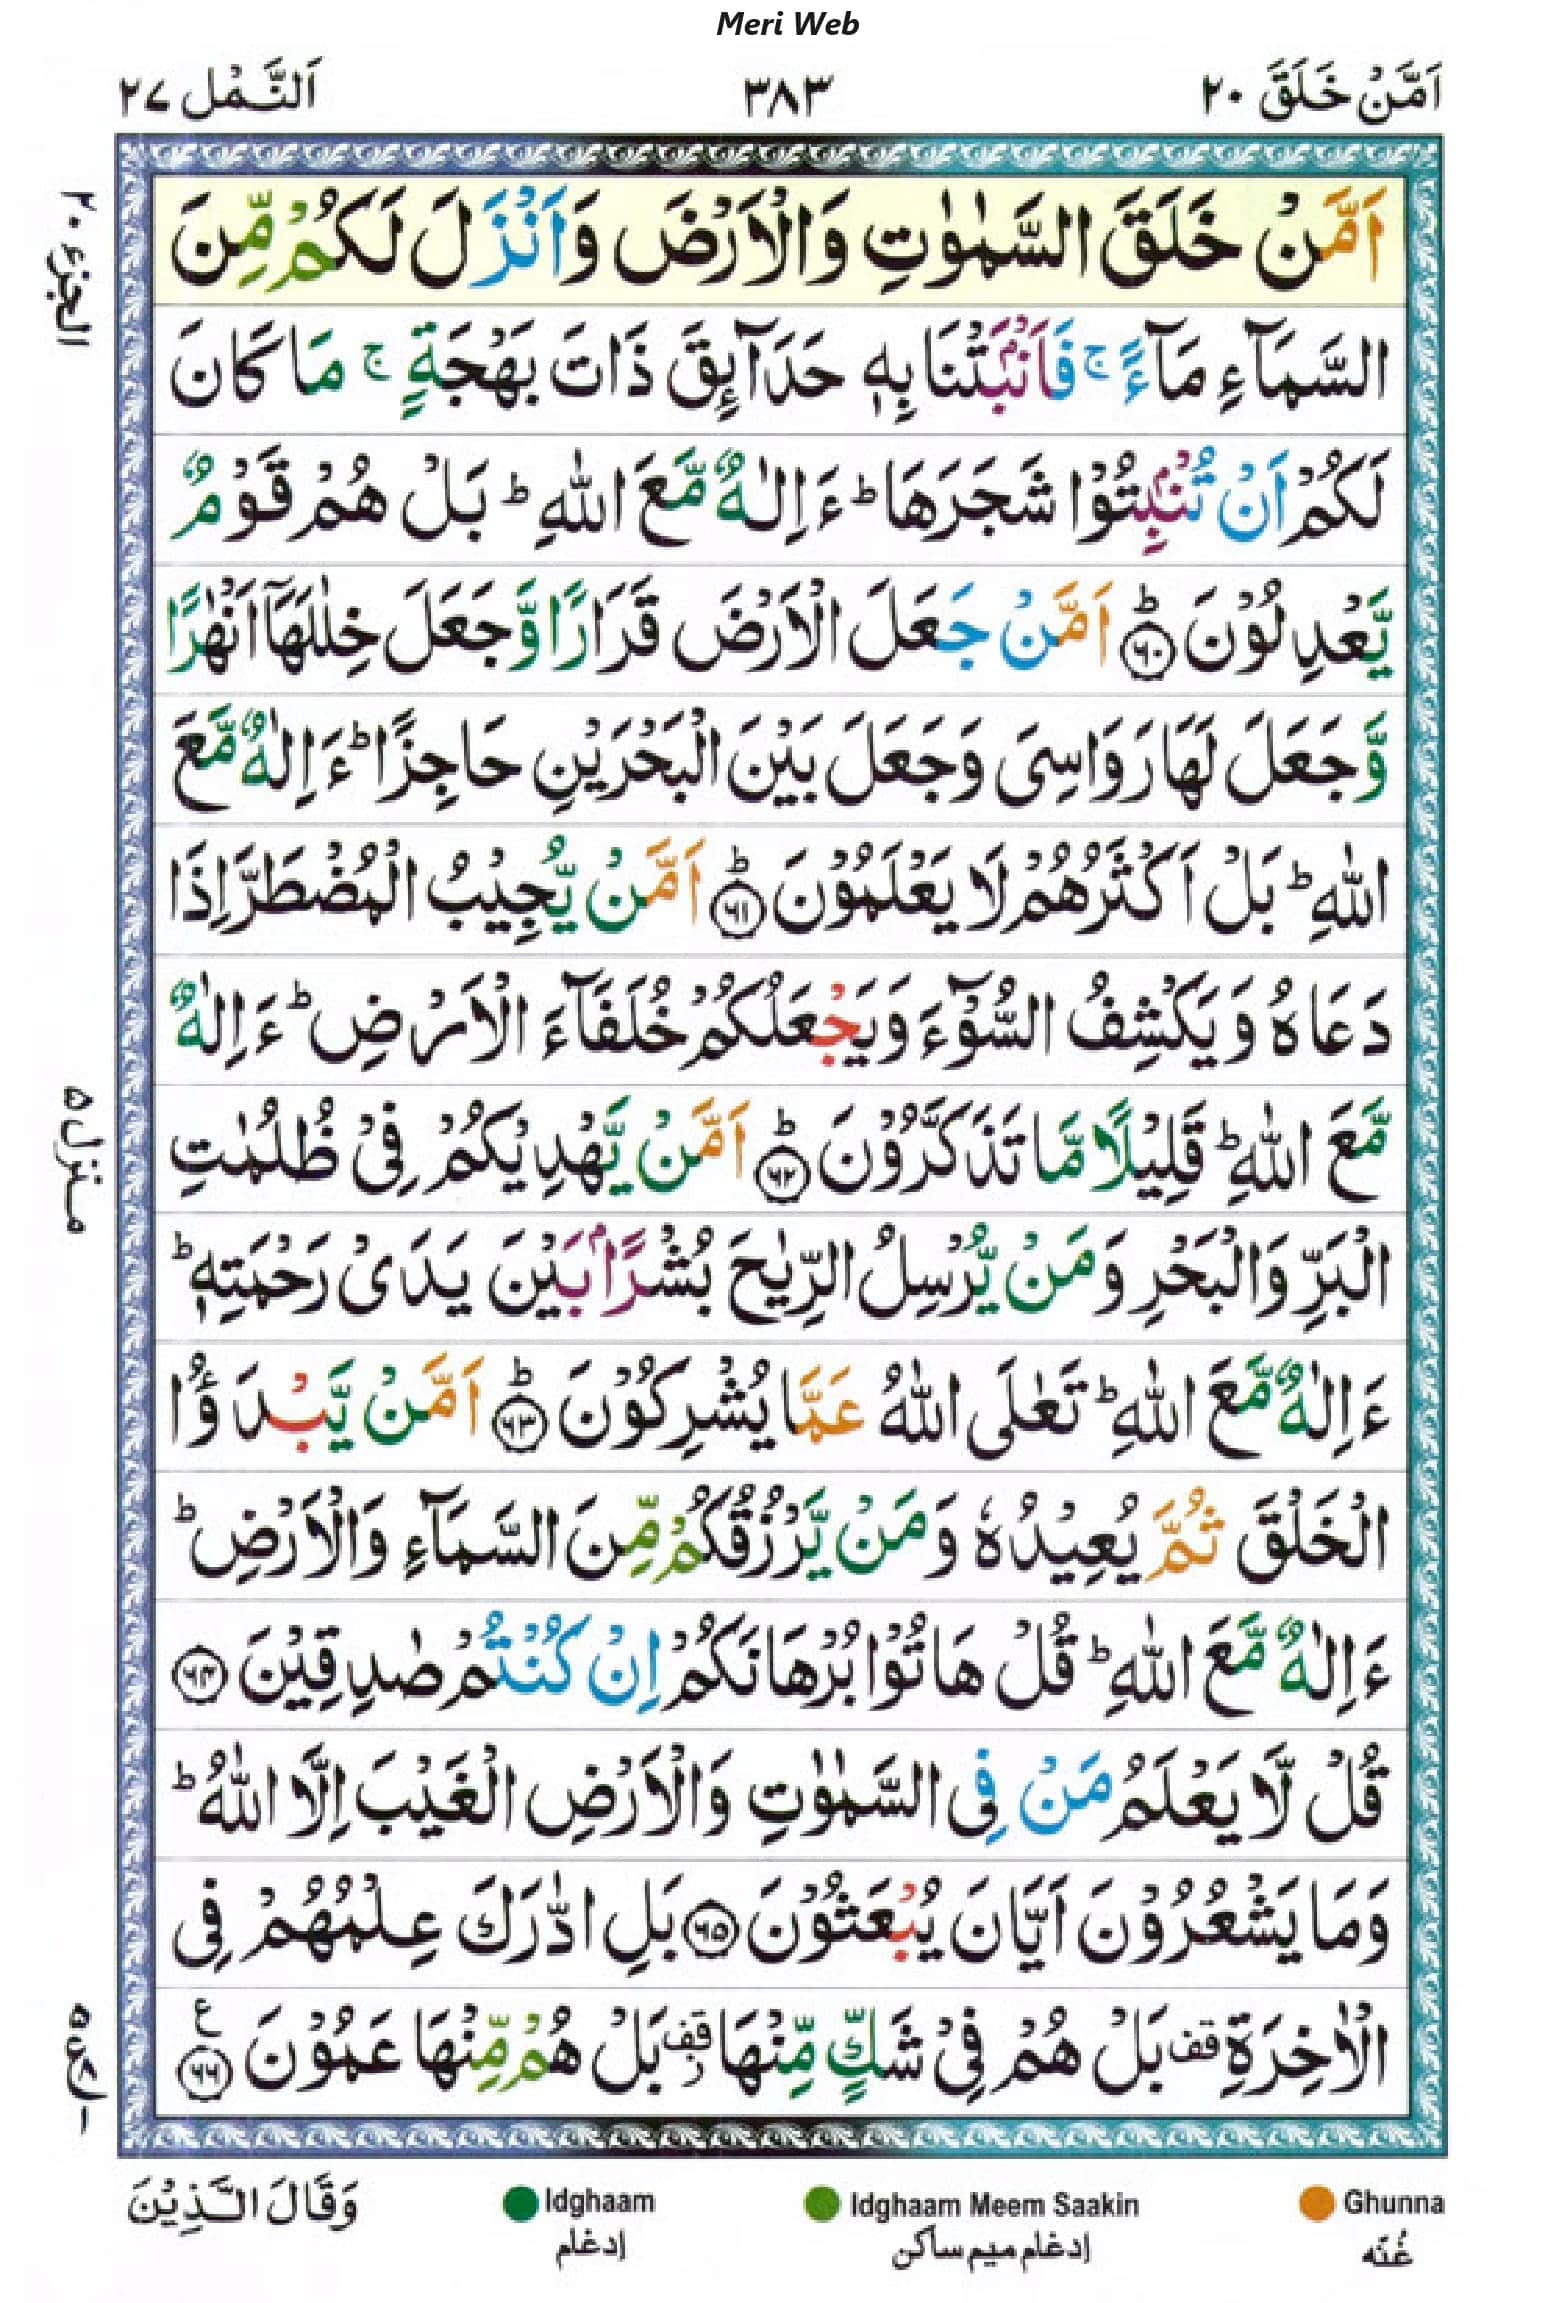 Meri Web
اَمَّنۡ خَلَقَ ۲۰
۳۸۳
اَلنَّمۡل ۲۷
اَمَّنۡ خَلَقَ السَّمٰوٰتِ وَالۡاَرۡضَ وَاَنۡزَلَ لَكُمۡ مِّنَ
السَّمَآءِ مَآءً ۚ فَاَنۡۢبَتۡنَا بِهٖ حَدَآئِقَ ذَاتَ بَهۡجَةٍ ۚ مَا كَانَ
لَكُمۡ اَنۡ تُنۡۢبِتُوۡا شَجَرَهَا ؕ ءَاِلٰهٌ مَّعَ اللّٰهِ ؕ بَلۡ هُمۡ قَوۡمٌ
يَّعۡدِلُوۡنَ ؕ‏ ۶۰ اَمَّنۡ جَعَلَ الۡاَرۡضَ قَرَارًا وَّجَعَلَ خِلٰلَهَاۤ اَنۡهٰرًا
وَّجَعَلَ لَهَا رَوَاسِىَ وَجَعَلَ بَيۡنَ الۡبَحۡرَيۡنِ حَاجِزًا ؕ ءَاِلٰهٌ مَّعَ
اللّٰهِ ؕ بَلۡ اَكۡثَرُهُمۡ لَا يَعۡلَمُوۡنَ ؕ ۶۱ اَمَّنۡ يُّجِيۡبُ الۡمُضۡطَرَّ اِذَا
دَعَاهُ وَيَكۡشِفُ السُّوۡٓءَ وَيَجۡعَلُكُمۡ خُلَفَآءَ الۡاَرۡضِ ؕ ءَاِلٰهٌ
مَّعَ اللّٰهِ ؕ قَلِيۡلًا مَّا تَذَكَّرُوۡنَ ؕ ۶۲ اَمَّنۡ يَّهۡدِيۡكُمۡ فِىۡ ظُلُمٰتِ
الۡبَرِّ وَالۡبَحۡرِ وَمَنۡ يُّرۡسِلُ الرِّيٰحَ بُشۡرًۢا بَيۡنَ يَدَىۡ رَحۡمَتِهٖ ؕ
ءَاِلٰهٌ مَّعَ اللّٰهِ ؕ تَعٰلَى اللّٰهُ عَمَّا يُشۡرِكُوۡنَ ؕ ۶۳ اَمَّنۡ يَّبۡدَؤُا
الۡخَلۡقَ ثُمَّ يُعِيۡدُهٗ وَمَنۡ يَّرۡزُقُكُمۡ مِّنَ السَّمَآءِ وَالۡاَرۡضِ ؕ
ءَاِلٰهٌ مَّعَ اللّٰهِ ؕ قُلۡ هَاتُوۡا بُرۡهَانَكُمۡ اِنۡ كُنۡتُمۡ صٰدِقِيۡنَ ۶۴
قُلۡ لَّا يَعۡلَمُ مَنۡ فِى السَّمٰوٰتِ وَالۡاَرۡضِ الۡغَيۡبَ اِلَّا اللّٰهُ ؕ
وَمَا يَشۡعُرُوۡنَ اَيَّانَ يُبۡعَثُوۡنَ ۶۵ بَلِ ادّٰرَكَ عِلۡمُهُمۡ فِى
الۡاٰخِرَةِ قف بَلۡ هُمۡ فِىۡ شَكٍّ مِّنۡهَا قف بَلۡ هُمۡ مِّنۡهَا عَمُوۡنَ ۶۶ ع
الجزء ۲۰
منزل ۵
وَقَالَ الَّذِيۡنَ
Idghaam
إدغام
Idghaam Meem Saakin
إدغام ميم ساكن
Ghunna
غُنّه